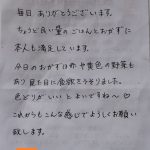 毎日 ありがとうございます。
ちょうど良い量の ごはんとおかずに
本人も満足しています。
今日のおかずは赤や黄色の野菜も
あり 見た目に食欲をそそりました。
色どりがいい とよいですね～
これからもこんな感じで よろしくお願い
致します。